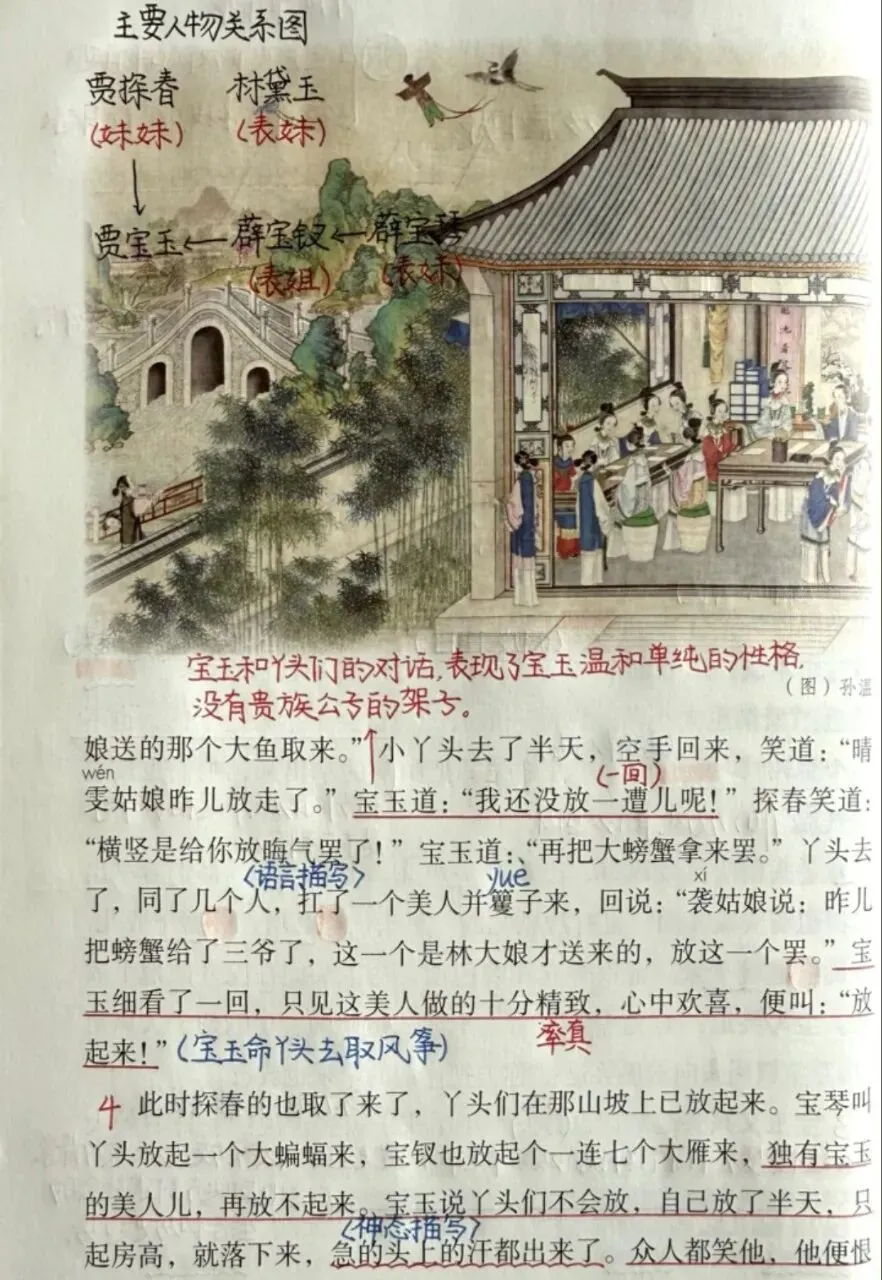 主要人物关系图
贾探春 林黛玉
(妹妹) (表妹)
贾宝玉←薛宝钗←薛宝琴
(表姐) (表妹)
宝玉和丫头们的对话,表现了宝玉温和单纯的性格,
(图)孙温
没有贵族公子的架子。
娘送的那个大鱼取来。”小丫头去了半天,空手回来,笑道:“晴
wén
(一间)
雯姑娘昨儿放走了。”宝玉道:“我还没放一遭儿呢!”探春笑道:
“横竖是给你放晦气罢了!”宝玉道:“再把大螃蟹拿来罢。”丫头去
〈语言描写〉 yuè xí
了,同了几个人,扛了一个美人并籰子来,回说:“袭姑娘说:昨儿
把螃蟹给了三爷了,这一个是林大娘才送来的,放这一个罢。”宝
玉细看了一回,只见这美人做的十分精致,心中欢喜,便叫:“放
起来!”(宝玉命丫头去取风筝) 率真
4 此时探春的也取了来了,丫头们在那山坡上已放起来。宝琴叫
丫头放起一个大蝙蝠来,宝钗也放起个一连七个大雁来,独有宝玉
的美人儿,再放不起来。宝玉说丫头们不会放,自己放了半天,只
〈神态描写〉
起房高,就落下来,急的头上的汗都出来了。众人都笑他,他便恨